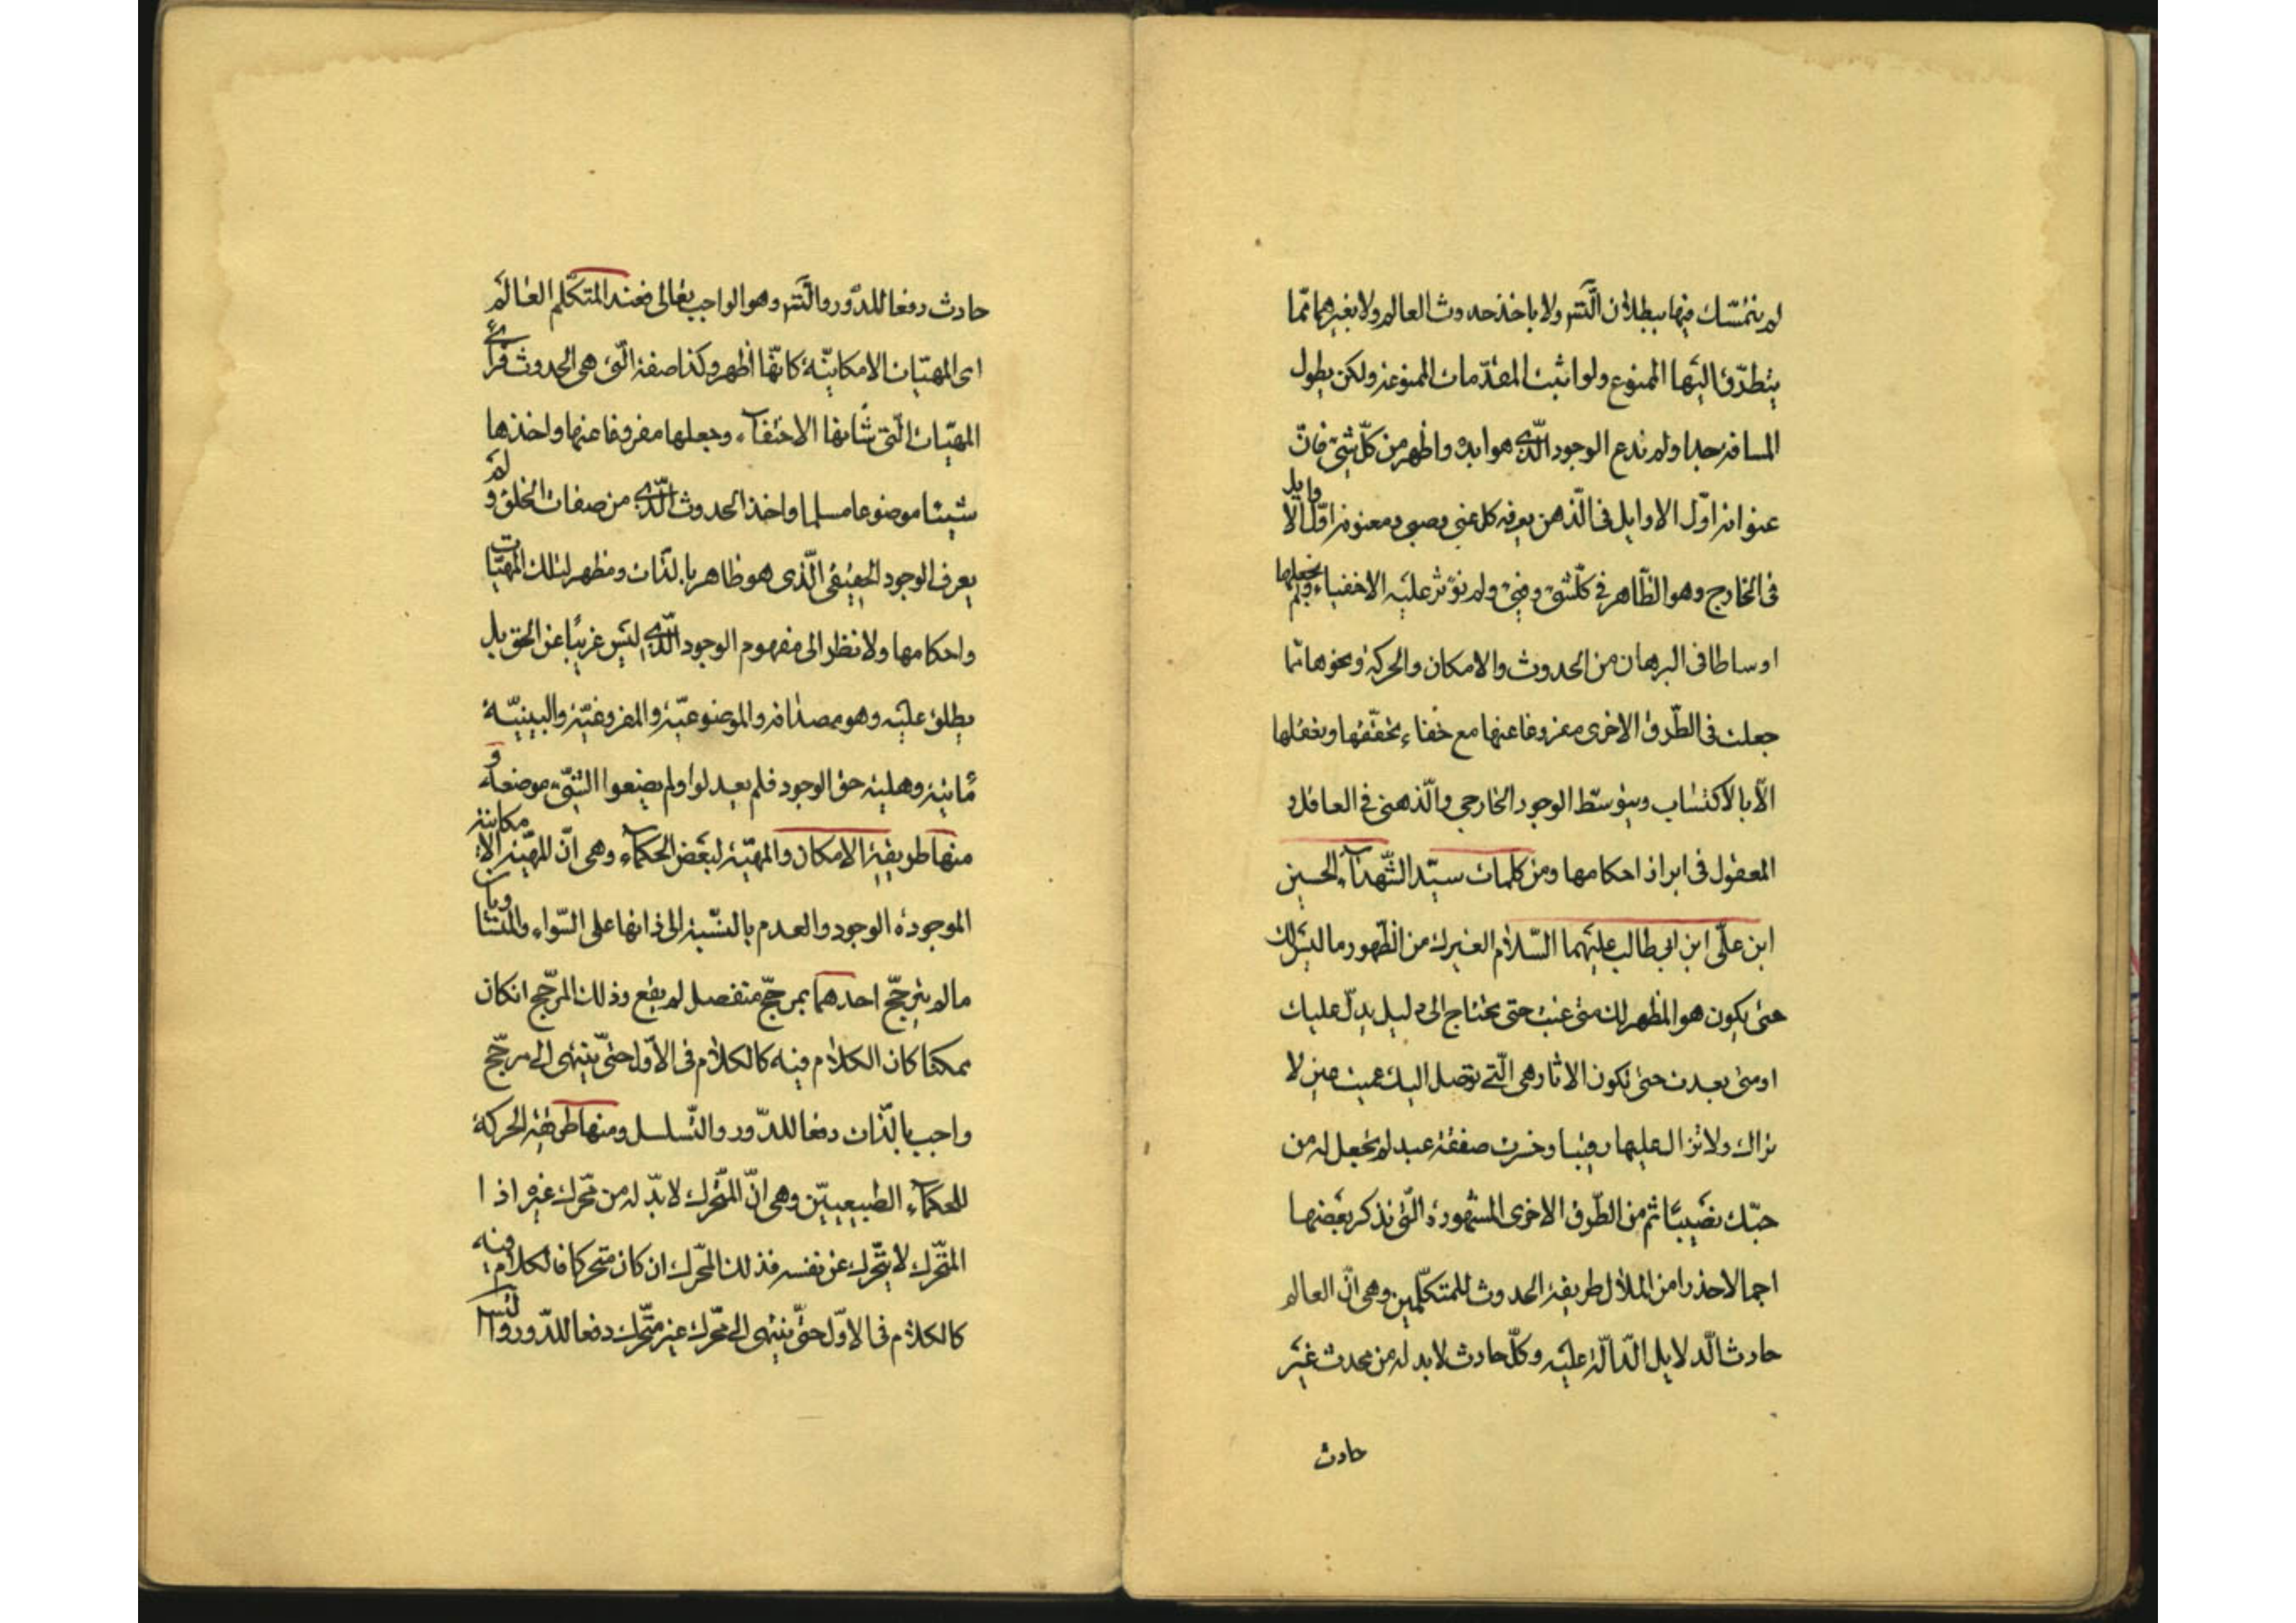 لم يتمسّك فيها ببطلان التّس ولا باخذ حدوث العالم ولا بغيرهما ممّا
يتطرّق اليها الممنوع ولو اثبت المقدّمات الممنوعة ولكن يطول
المسافة جدا ولم ندع الوجود الّذي هو ابده واظهر من كلّ شيء فانّ
عنوانه اوّل الاوايل في الذّهن يعرفه كل غبي وصبي ومعنونه اوّل الاوايل
في الخارج وهو الظّاهر في كلّ شيء وفيء ولم نؤثر عليه الاخفياء ولم نجعلها
اوساطا في البرهان من الحدوث والامكان والحركة ونحوها ممّا
جعلت في الطّرق الاخرى مفروغا عنها مع خفاء تحقّقها وتعقلها
الّا بالاكتساب وبتوسّط الوجود الخارجي والّذهني في العاقل و
المعقول في ابراز احكامها ومن كلمات سيّد الشّهدآء الحسين
ابن علّي ابن ابي طالب عليهما السّلام الغيرك من الظّهور ما ليس لك
حتى يكون هو المظهر لك متى غبت حتى تحتاج الى دليل يدلّ عليك
او متى بعدت حتى تكون الاثار هي الّتي توصل اليك عميت عين لا
تراك ولا تزال عليها رقيبا وخسرت صفقة عبد لم تجعل له من
حبّك نصيبا ثم من الطّرق الاخرى المشهورة الّتي نذكر بعضها
اجمالا حذرا من الملال طريقة الحدوث للمتكلّمين وهي انّ العالم
حادث الّدلايل الدّالّة عليه وكلّ حادث لا بد له من محدث غير
حادث
حادث دفعا للدّور والتّس وهو الواجب تعالى فعند المتكلّم العالم
اى المهيّات الامكانيّة كانّها اظهر وكذا صفة الّتي هي الحدوث فرأى
المهيّات الّتي شأنها الاختفآء وجعلها مفروغا عنها واخذها
شيئا موضوعا مسلما واخذ الحدوث الّذي من صفات الخلق ولم
يعرف الوجود الحقيقي الّذى هو ظاهر بالذّات ومظهر لتلك المهيّات
واحكامها ولا نظر الى مفهوم الوجود الّذي ليس غريبا عن الحق بل
يطلق عليه وهو مصداقه والموضوعيّة والمفروغيّة والبينيّة
مائية وهلية حق الوجود فلم يعدلوا ولم يضعوا الشّيء موضعه و
منها طريقة الامكان والمهيّة لبعض الحكمآء وهي انّ للمهيّة الامكانية
الموجودة الوجود والعدم بالنّسبة الى ذاتها على السّواء والمتساويان
ما لم يترجّح احدهما بمرجّح منفصل لم يقع وذلك المرجّح انكان
ممكنا كان الكلام فيه كالكلام في الاوّل حتى ينتهى الى مرجّح
واجب بالذّات دفعا للدّور والتّسلسل ومنها طريقة الحركة
للحكمآء الطبيعييّن وهي انّ المتّحرك لا بدّ له من محّرك غيره اذ ا
المتّحرك لا يتّحرك عن نفسه فذلك المحّرك ان كان متحركا فالكلام فيه
كالكلام في الاوّل حتّى ينتهى الى محّرك غير متّحرك دفعا للدّور والتس